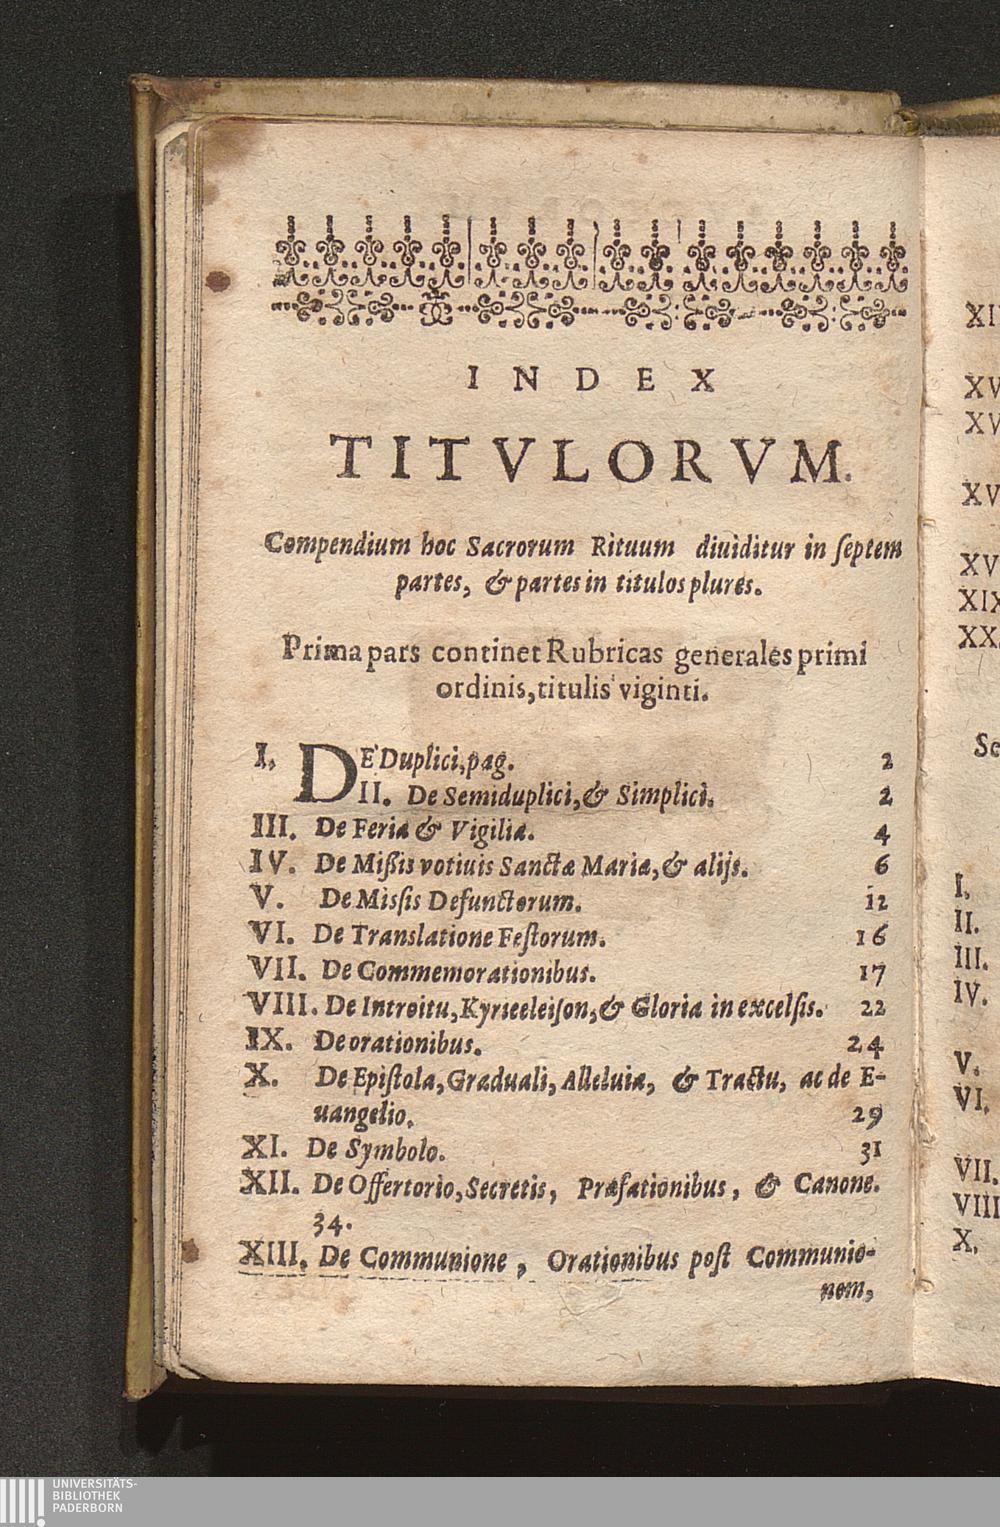 INDEX
TITVLORVM.
Compendium hoc Sacrorum Rituum diuiditur in ſeptem
partes, & partes in titulos plures.
Prima pars continet Rubricas generales primi
ordinis, titulis viginti.
I. DE Duplici, pag. 2
II. De Semiduplici, & Simplici. 2
III. De Feria & Vigilia. 4
IV. De Mißis votiuis Sanctæ Mariæ, & alijs. 6
V. De Misſis Defunctorum. 12
VI. De Translatione Feſtorum. 16
VII. De Commemorationibus. 17
VIII. De Introitu, Kyrieeleiſon, & Gloria in excelſis. 22
IX. De orationibus. 24
X. De Epiſtola, Graduali, Alleluia, & Tractu, ac de E-
uangelio. 29
XI. De Symbolo. 31
XII. De Offertorio, Secretis, Præfationibus, & Canone.
34.
XIII. De Communione, Orationibus poſt Communio-
nem,
XI
XV
XV
XV
XV
XIX
XX
Se
I.
II.
III.
IV.
V.
VI.
VII.
VIII
X.
UNIVERSITÄTS-
BIBLIOTHEK
PADERBORN